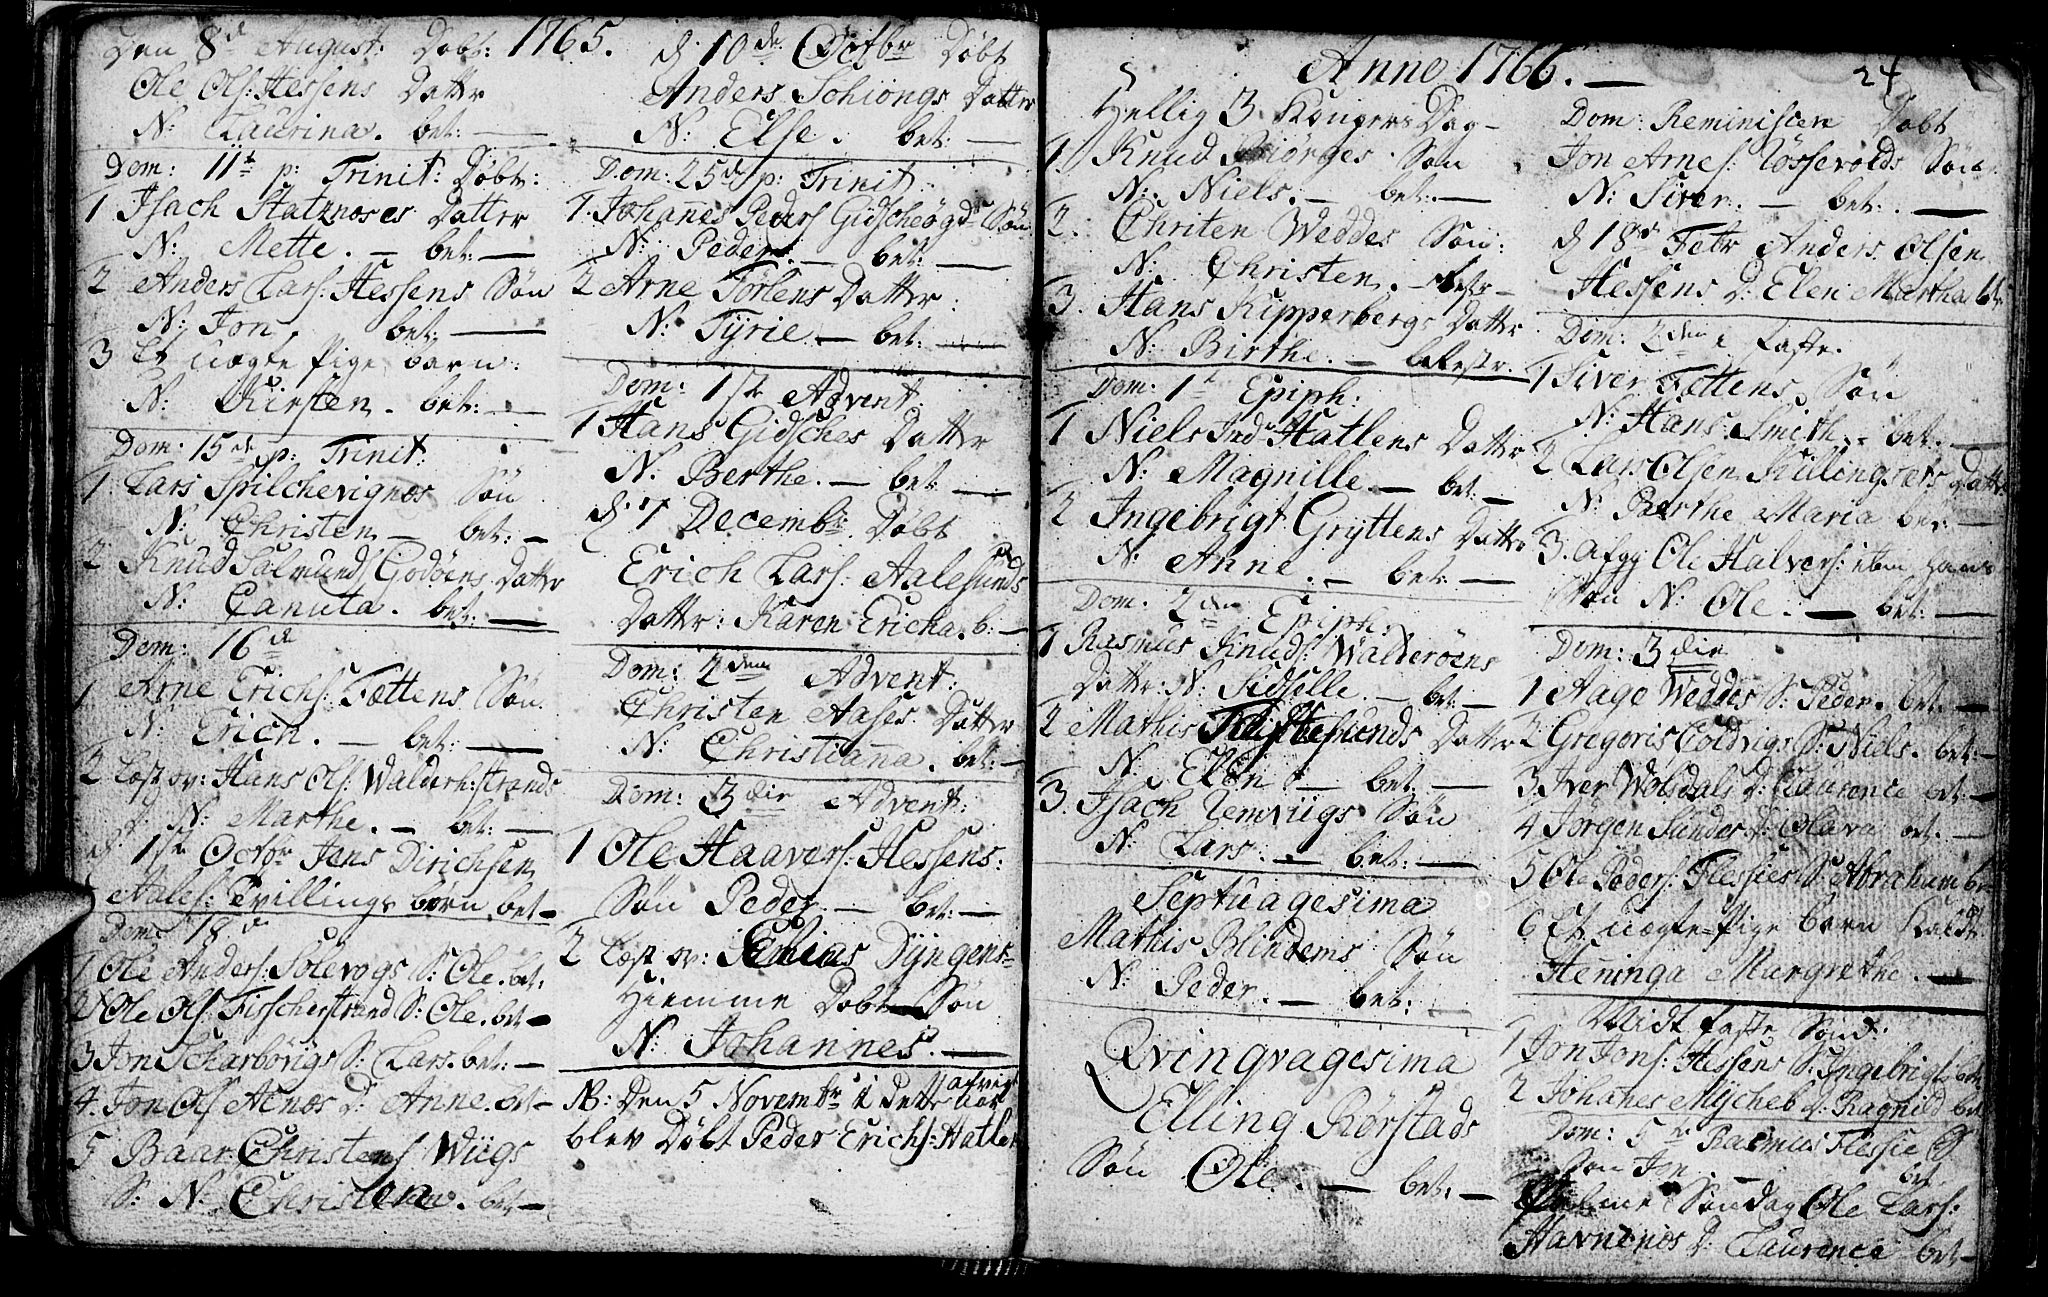 Den 8de August: Döbt: 1765.
Ole Ols: Hessens Dattr
N: Laurina. bet: —
Dom: 11te p: Trinit: Döbt:
1 Isach Statznoses Datter
N: Mette. — bet: —
2 Anders Lars: Hessens Søn
N: Jon. bet: —
3 Et uægte Pige barn:
N: Kirsten. bet: —
Dom: 15de p: Trinit:
1 Lars Spilchevignæs Søn
N: Christen — bet: —
2 Knud Salmunds Godöens Dattr
N: Canuta. bet: —
Dom: 16de
1 Arne Erichs: Fættens Søn.
N: Erich. — bet: —
2 Hans Ols: Walderh:strands
N: Marthe. — bet: —
d 1ste Octobr Jens Dirichsen
Aales: Tvillings børn bet —
Dom: 18de
1 Ole Anders: Solevogs S: Ole. bet:
2 Ole Ols: Fischerstrand S: Ole. bet —
3 Jon Scharbövigs S: Lars. bet: —
4. Jon Ols Aenæs D: Anne. bet —
5 Baar Christens Wiigs
S: N: Christen. bet —
d. 10de Octbr Döbt
Anders Schiongs Datter
N: Else. bet: —
Dom: 25de p: Trinit:
1. Johannes Peders Gidscheögd Søn
N: Peder. — bet: —
2 Arne Törlens Dattr
N: Tyrie — bet: —
Dom: 1ste Advent.
1 Hans Gidsches Dattr
N: Berthe. — bet: —
d. 7 Decembr: Döbt
Erich Lars: Aalesunds
Dattr: Karen Ericha. b: —
Dom: 2den Advent:
Christen Aases Datter
N: Christianna. bet: —
Dom: 3die Advent:
1 Ole Haavers: Hessens:
Søn Peder — bet: —
2 Elias Dyngens-
Hiemme Döbt Søn
N: Johannes. —
NB: Den 5 Novembr i dette aar
blev Döbt Peder Erichs: Hatlen
Anno 1766. —
24
Hellig 3 Kongers Dag —
1. Knud Biörges Søn
N: Niels. — bet: —
2. Christen Weddes Søn:
N: Christen. —
3. Hans Kipperbergs Dattr
N: Birthe. —
Dom: 1te Epiph:
1 Niels Hatlens Dattr
N: Magnille. — bet: —
2 Ingebrigt Gryttens Dattr
N: Anne. — bet: —
Dom. 2den Epiph:
1 Rasmus Knuds: Walderöens
Dattr: N: Sidselle. — bet: —
2 Mathis Datter
N: Elen — bet. —
3. Isach Nemviigs Søn
N: Lars. — bet: —
Septuagesima
Mathis Blindems Søn
N: Peder. — bet: —
Qvinqvagesima
Elling Rörstads
Søn Ole. — bet: —
Dom: Reminiscere Döbt
Jon Arnes: Søn
N: Siver. — bet: . —
d 18de Febr Anders Olsen
Hessens D: Elen Martha bt
Dom: 2den i faste.
1 Siver Fættens Søn
N: Hans Smith. bet. —
2 Lars Olsen Killingsers Dattr
N: Berthe Maria bet: —
3. Afgg Ole Halvers:
Søn N: Ole. — bet: —
Dom: 3die
1 Aage Weddes S: Peder. bet. —
2 Gregoris Goldvigs S: Niels. bet: —
3 Iver Wolsdals D: Laurence bet —
4 Jørgen Sundes D: Olava bet. —
5 Ole Peders: Flessies S: Abraham be
6 Et uægte Pige barn Kaldt
Henninga Margrethe. —
Midt faste Sønd:
1 Jon Jons: Hessens S: Ingebrigt. bet
2 Johanes Myscheb D: Ragnild bet
Dom: 5te Rasmus Flessie
Søn Jon — bet.
Palme Søndag Ole Lars:
Havnenæs D: Laurence bet —